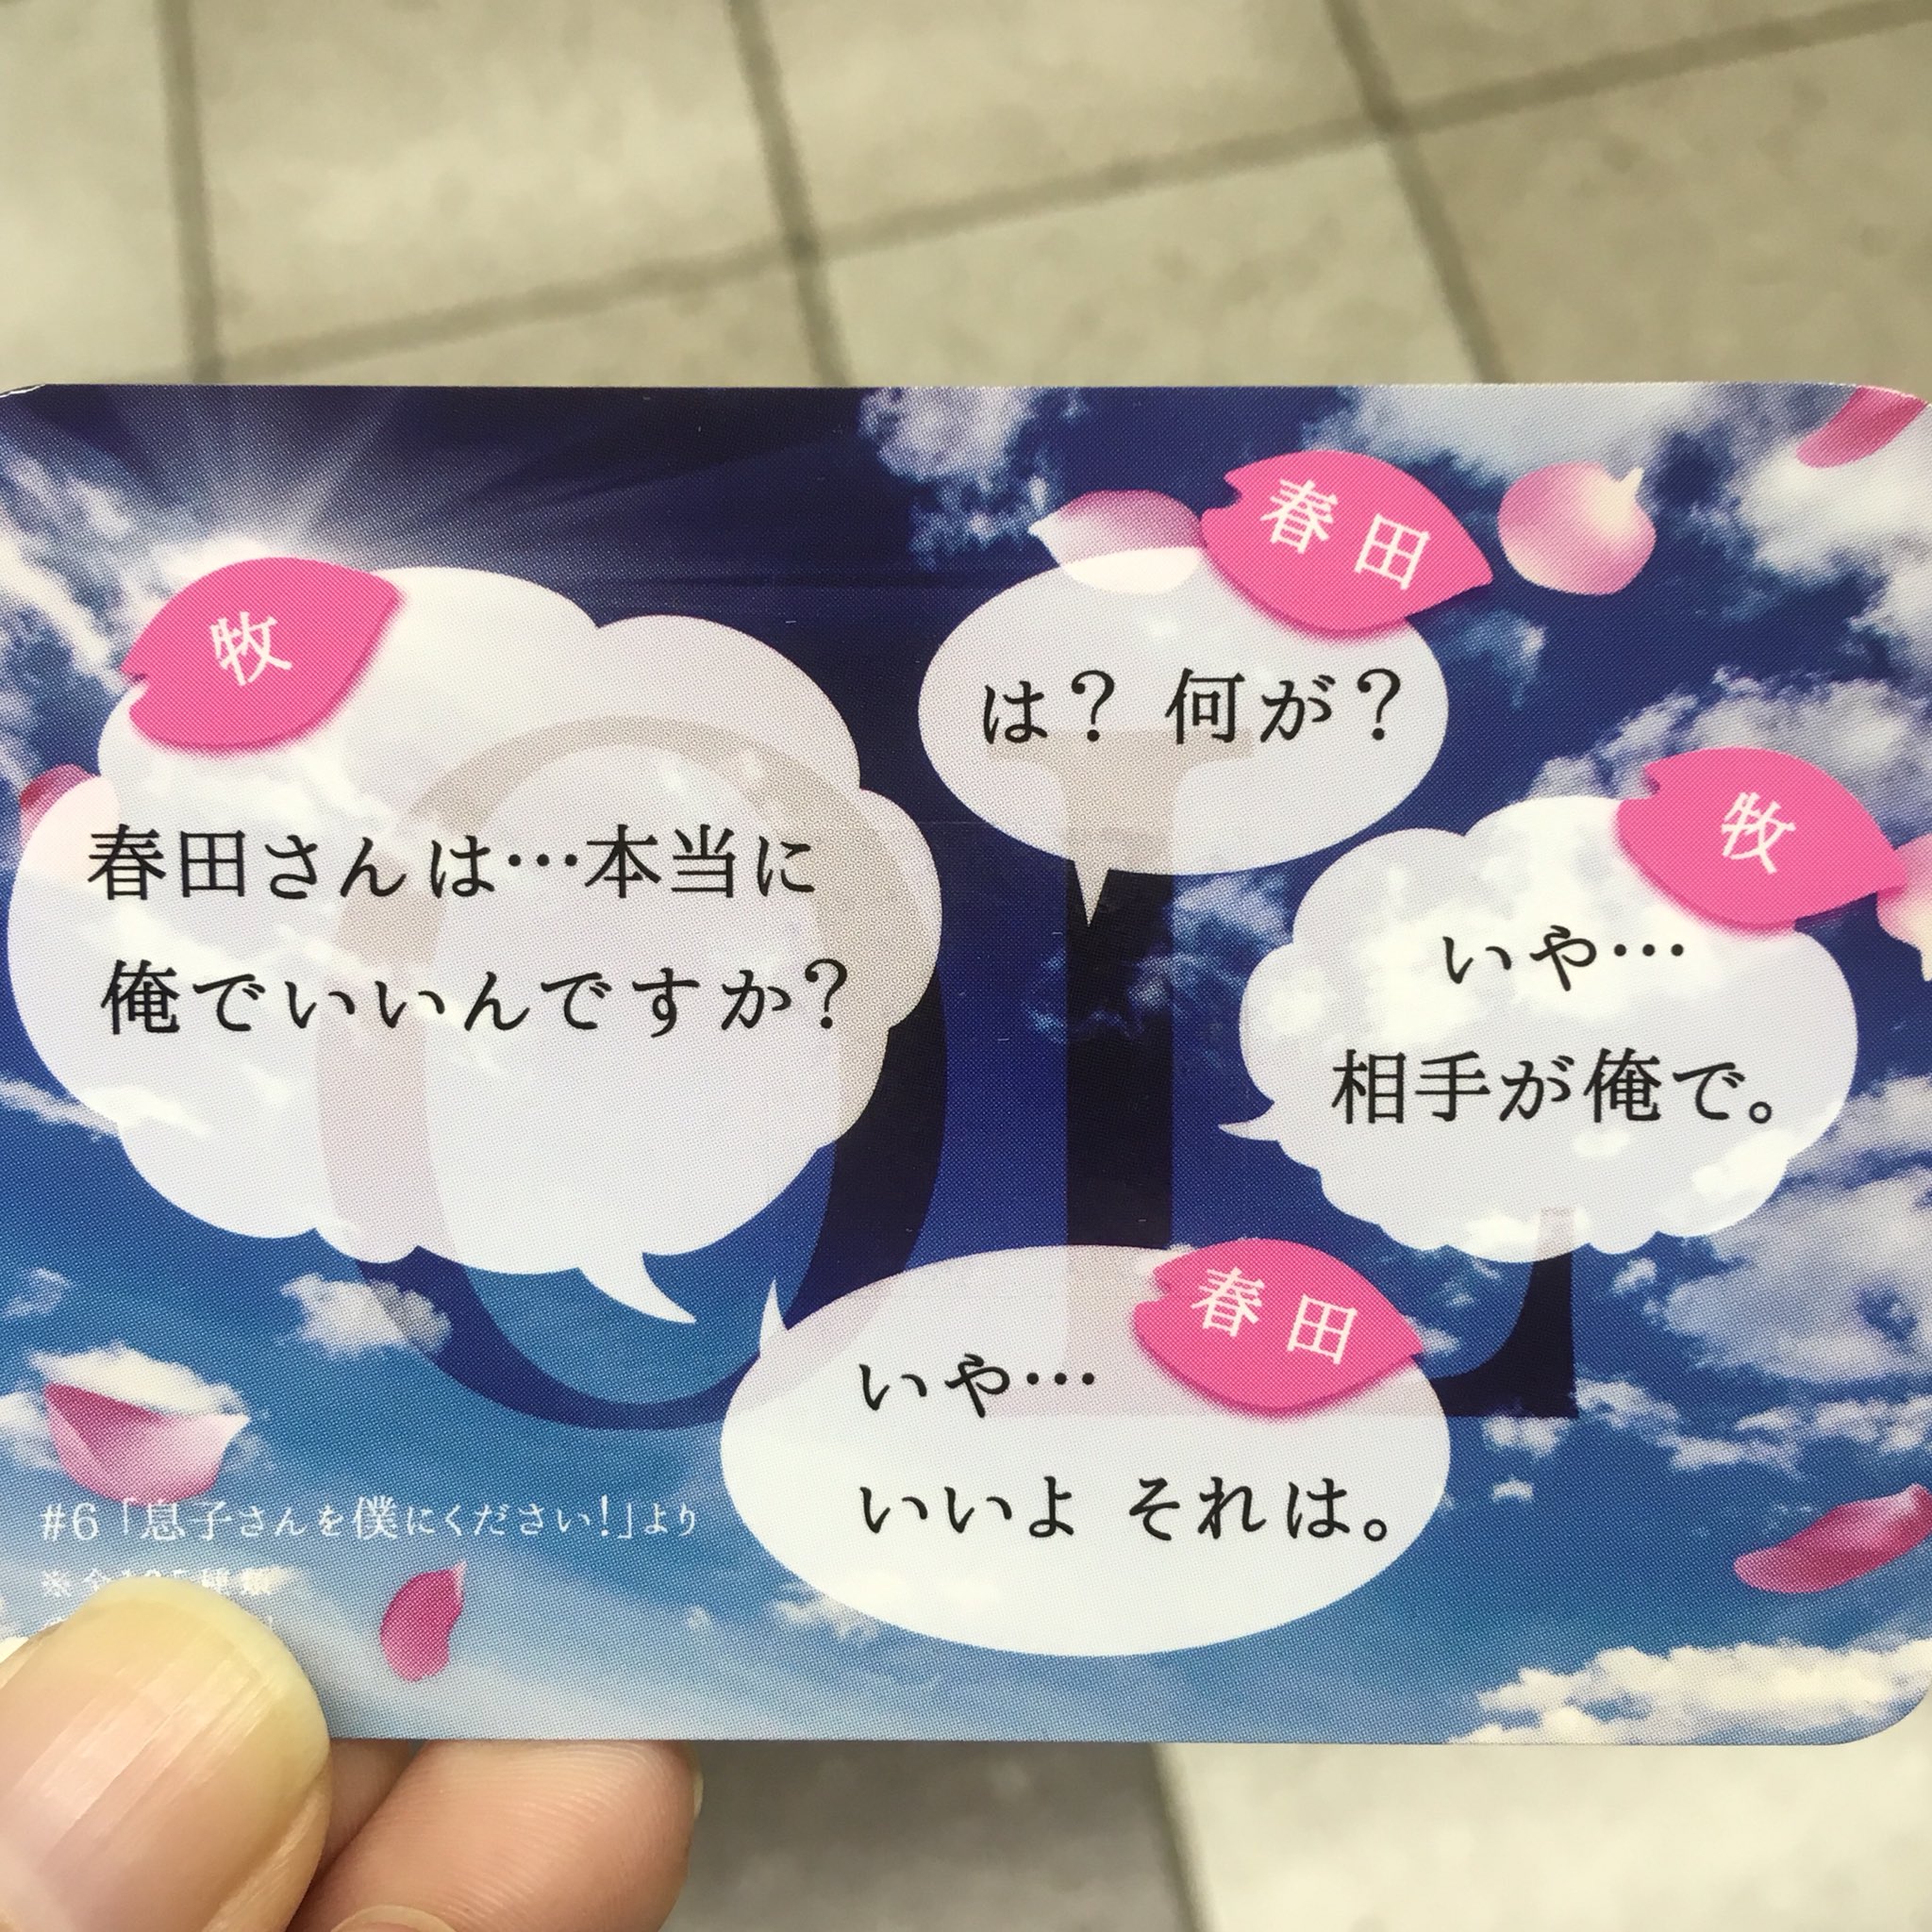 牧
春田さんは…本当に
俺でいいんですか?
春田
は? 何が?
牧
いや…
相手が俺で。
春田
いや…
いいよ それは。
#6「息子さんを僕にください!」より
OL